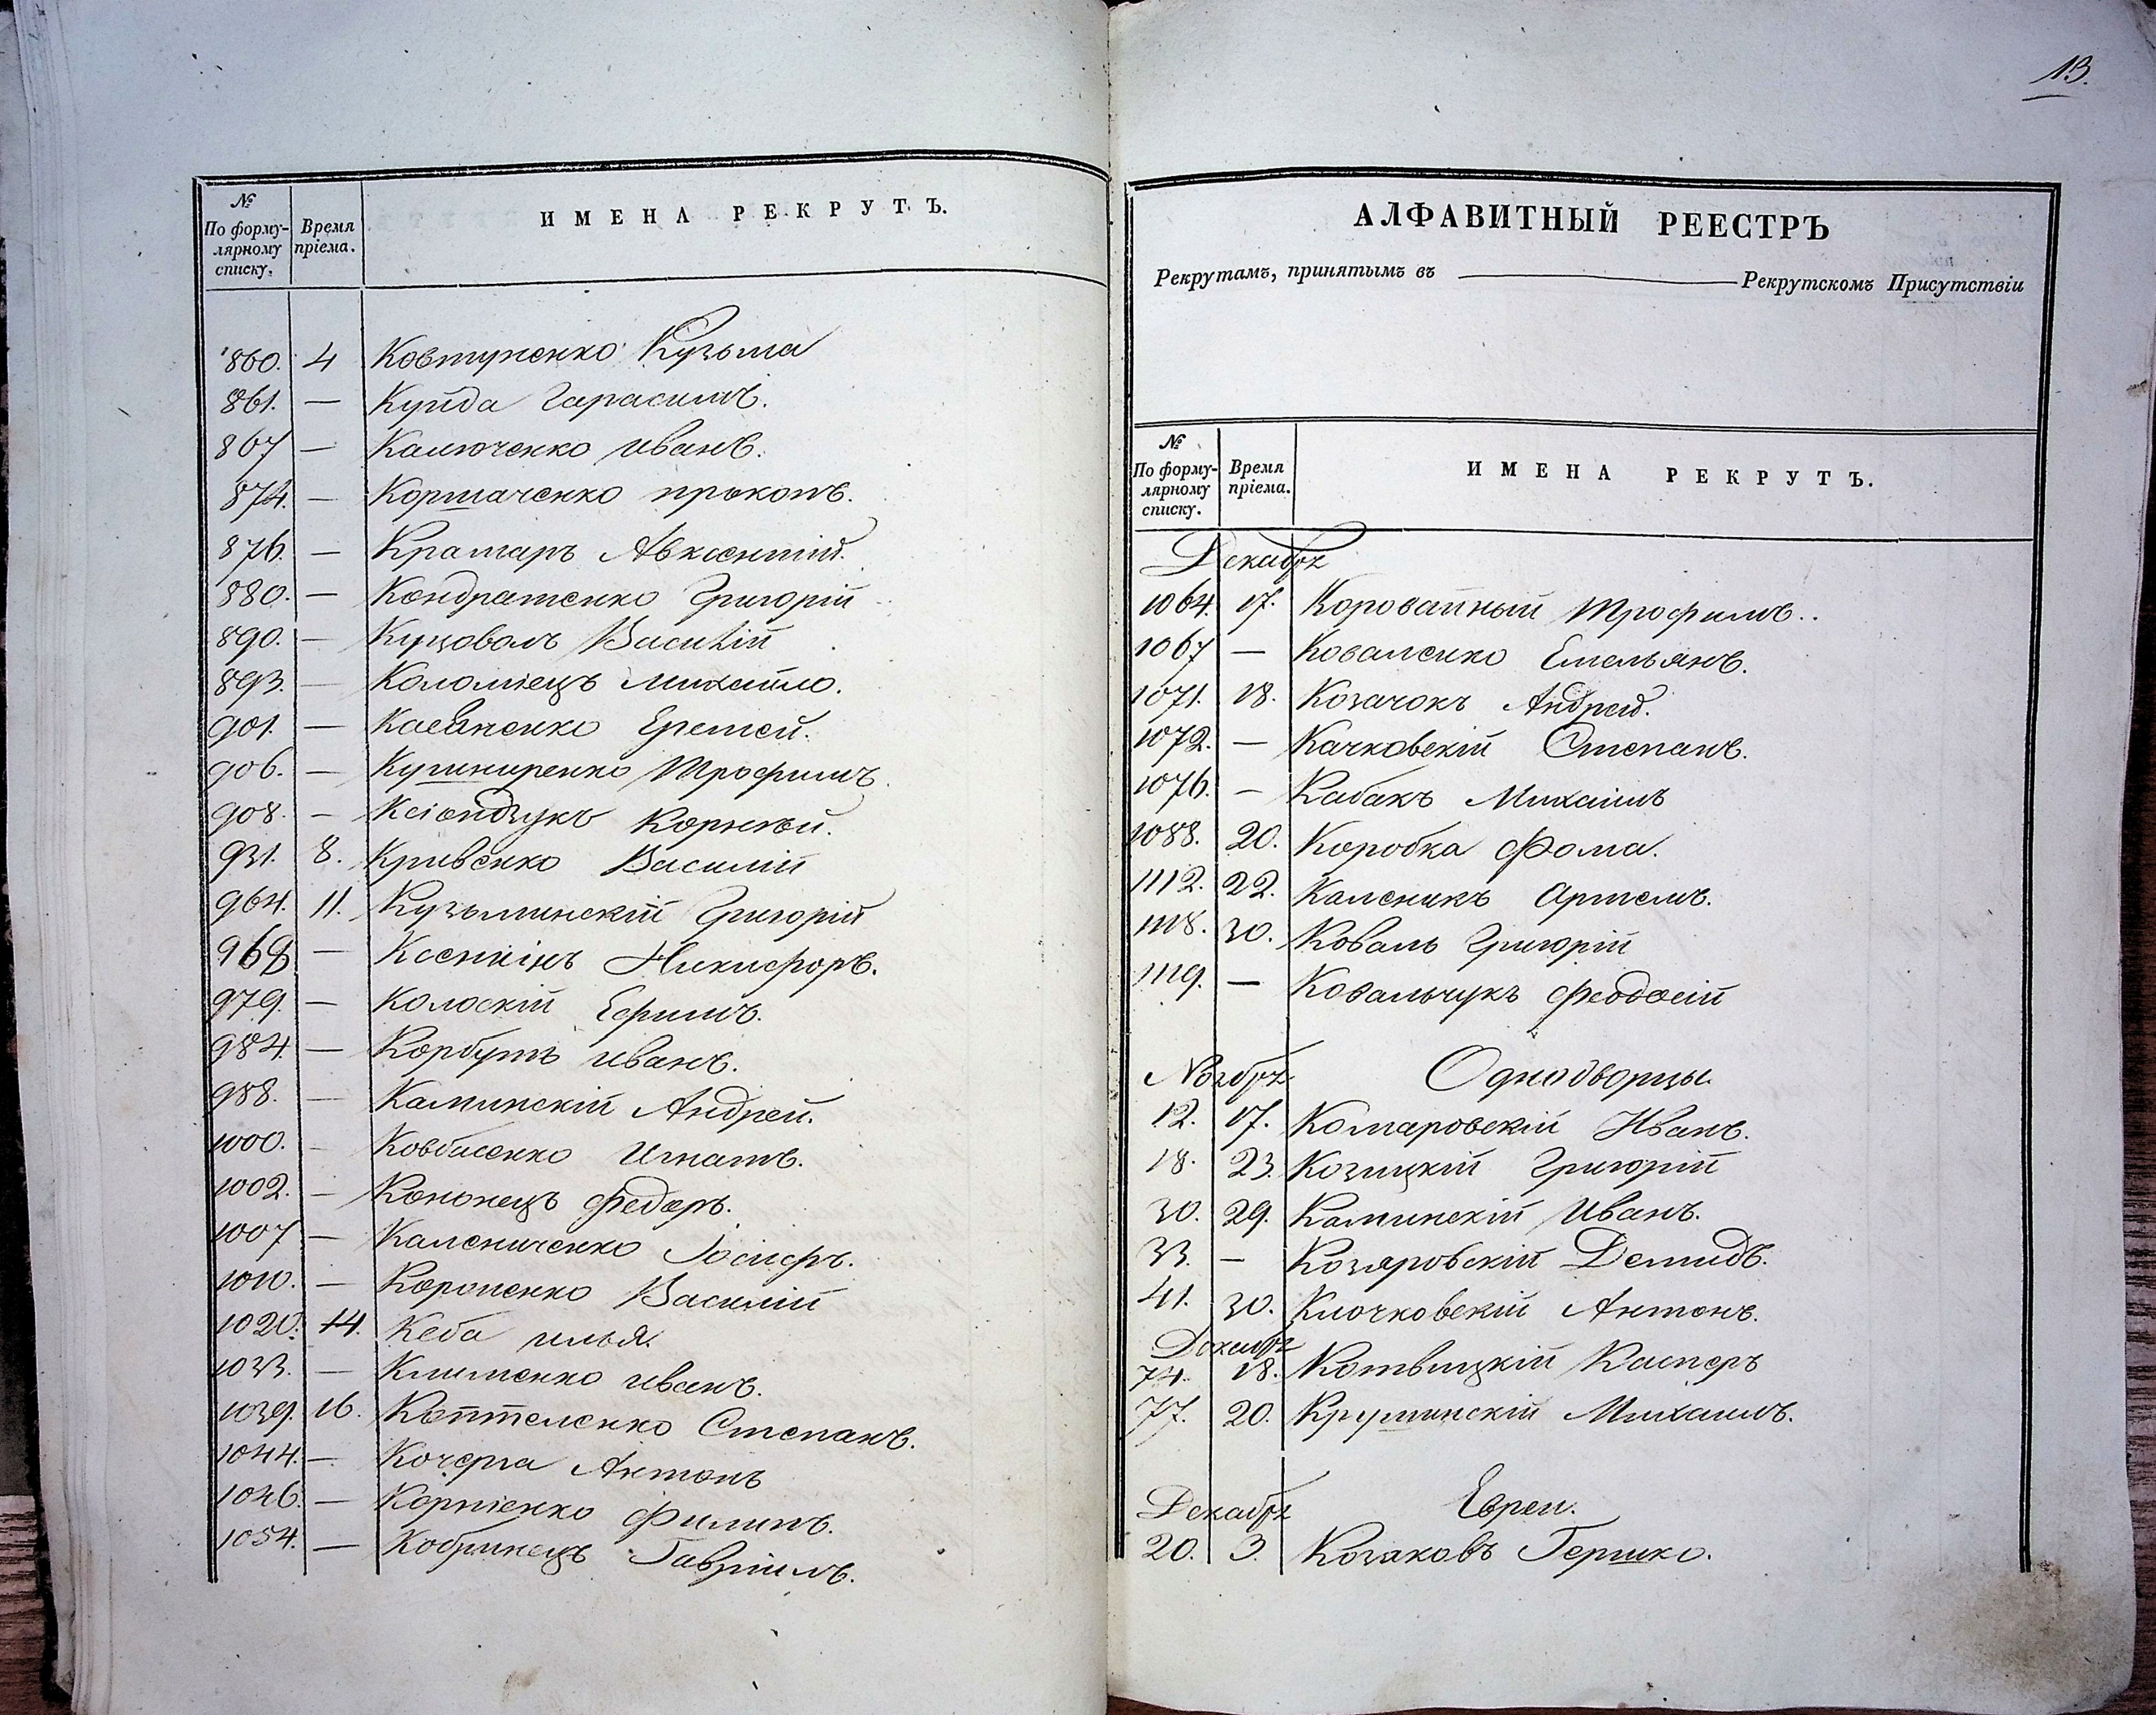 №
По форму-
лярному
списку.
Время
пріема.
ИМЕНА РЕКРУТЪ.
860. 4 Ковтуненко Кузьма
861. — Куйда Гарасимъ.
867 — Калюченко Иванъ.
874. — Кормаченко Прокопъ.
876. — Крамаръ Авксентій.
880. — Кондратенко Григорій
890. — Куцоволъ Василій
893. — Коломіецъ Михайло.
901. — Касьяненко Еремей.
906. — Кушниренко Трофимъ.
908. — Ксіондзукъ Корнѣй.
931. 8. Кривенко Василій
964. 11. Кузьминскій Григорій
968 — Никифоръ.
979. — Колоскій Ефимъ.
984. — Корбутъ Иванъ.
988. — Каминскій Андрей.
1000. — Ковбасенко Игнатъ.
1002. — Кононецъ Федоръ.
1007 — Калениченко Іосифъ.
1010. — Короненко Василій
1020. 14. Кеба Илья.
1033. — Клименко Иванъ.
1039. 16. Коптеленко Степанъ.
1044. — Кочерга Антонъ
1046. — Корніенко Филипъ.
1054. — Кобринецъ Гавріилъ.
13.
АЛФАВИТНЫЙ РЕЕСТРЪ
Рекрутамъ, принятымъ въ Рекрутскомъ Присутствіи
№
По форму-
лярному
списку.
Время
пріема.
ИМЕНА РЕКРУТЪ.
Декабрѣ
1064. 17. Коровайный Трофимъ..
1067 — Коваленко Емельянъ.
1071. 18. Козачокъ Андрей.
1072. — Качковскій Степанъ.
1076. — Кабакъ Михаилъ
1088. 20. Коробка Фома.
1112. 22. Каленикъ Артемъ.
1118. 30. Коваль Григорій
1119. — Ковальчукъ Феодосій
Ноябрѣ Однодворцы.
12. 17. Комаровскій Иванъ.
18. 23. Козицкій Григорій
30. 29. Каминскій Иванъ.
33. — Козяровскій Демидъ.
41. 30. Клочковскій Антонъ.
Декабрѣ
74. 18. Котвицкій Касперъ
77. 20. Крушинскій Михаилъ.
Декабрѣ Евреи.
20. 3. Козаковъ Гершко.